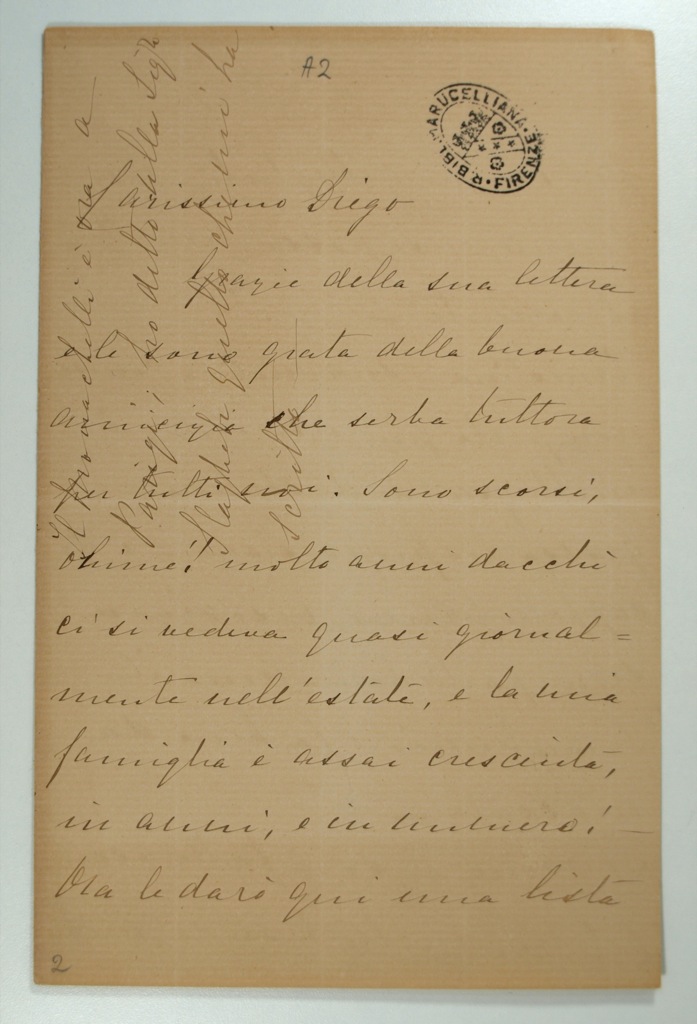 A2
R. BIBL. MARUCELLIANA · FIRENZE ·
Carissimo Diego
Grazie della sua lettera
e le sono grata della buona
amicizia che serba tuttora
per tutti noi. Sono scorsi,
ohimè! molto anni dacchè
ci si vedeva quasi giornal=
mente nell'estate, e la mia
famiglia è assai cresciuta,
in anni, e in numero! –
Ora le darò qui una lista
2
Il è ora a
Parigi, ho detto della Sigra
Stapher quello che mi ha
scritto –